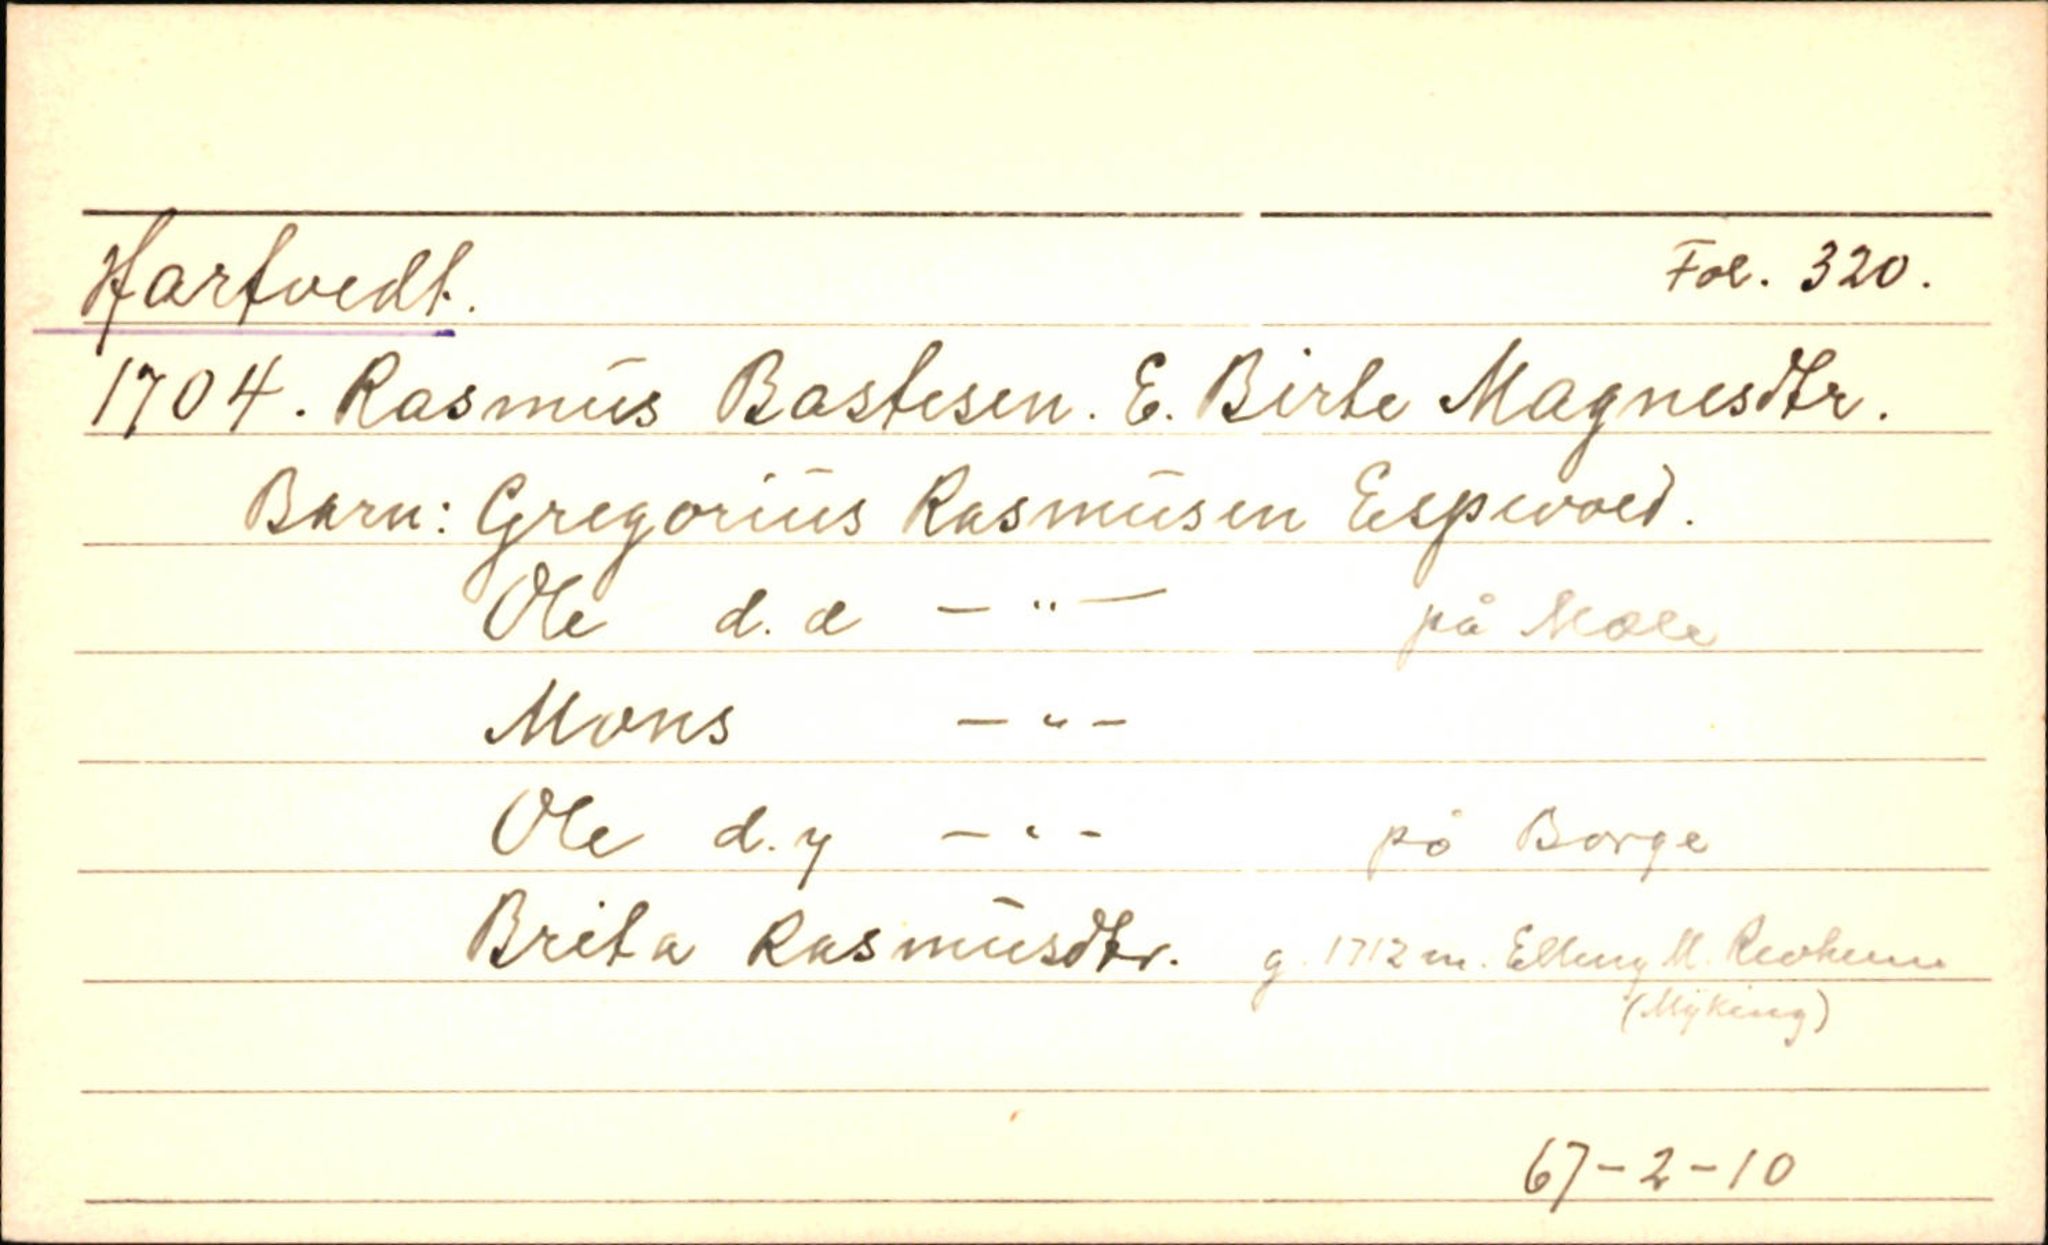 Hartvedt. Fol. 320.
1704. Rasmus Bastesen. E. Birte Magnesdtr.
Barn: Gregorius Rasmusen Espevold.
Ole d. e — " — på Mæle
Mons — " —
Ole d. y — " — på Borge
Brita Rasmusdtr. g. 1712 m. Elling M. Revheim
(Myking)
67-2-10